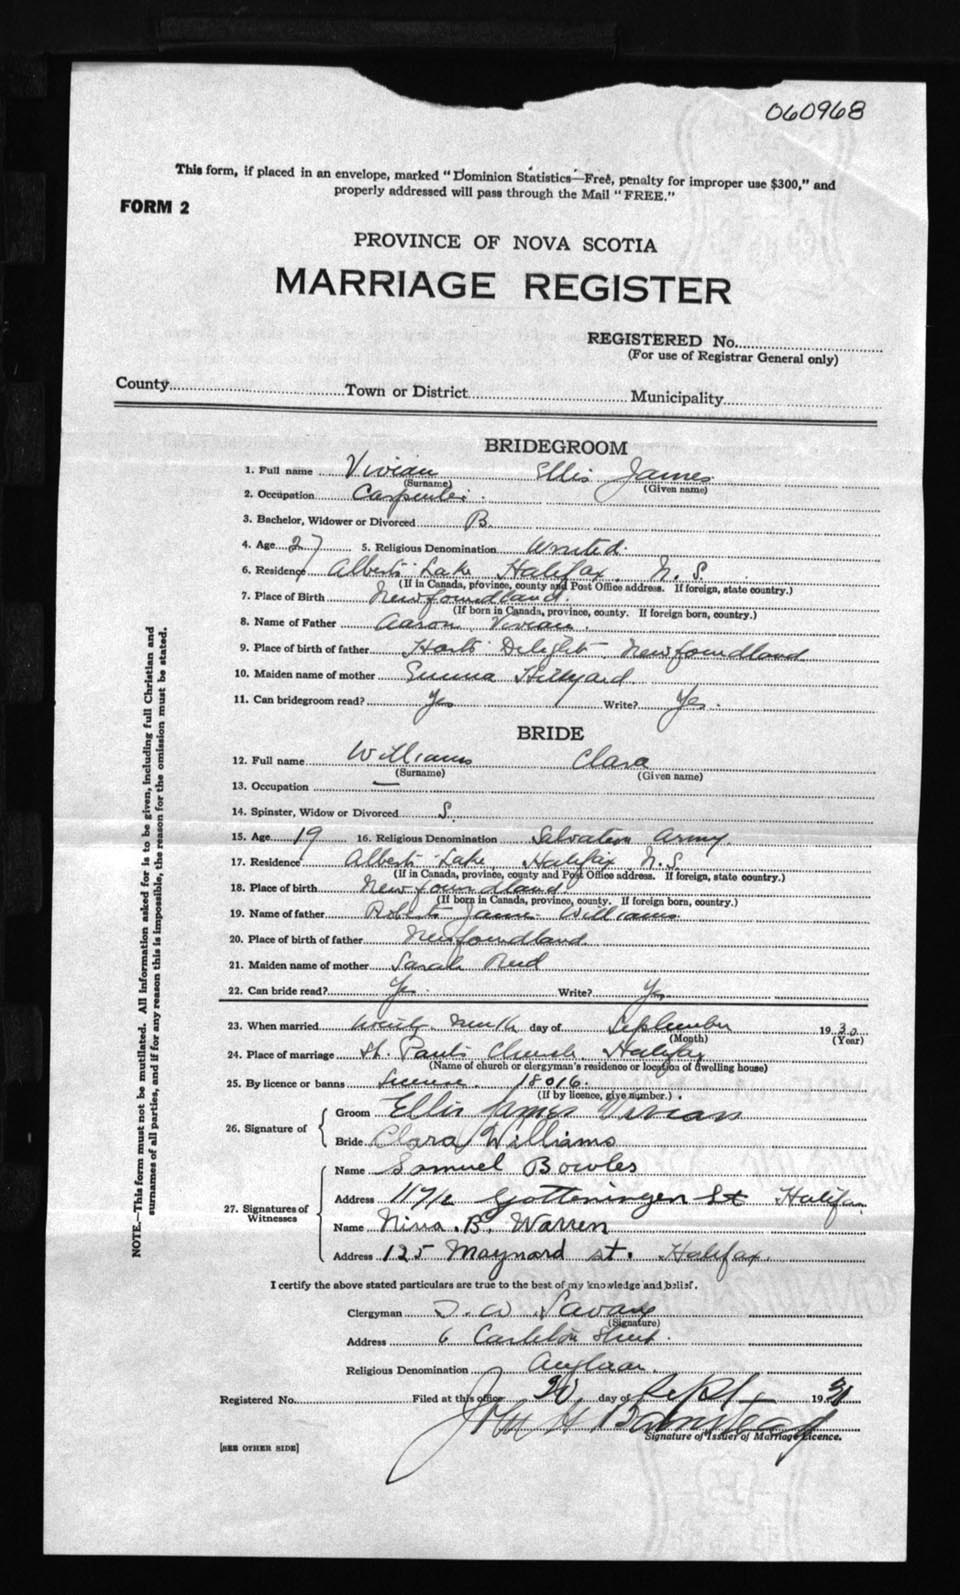 060968
This form, if placed in an envelope, marked "Dominion Statistics—Free, penalty for improper use $300," and
properly addressed will pass through the Mail "FREE."
FORM 2
PROVINCE OF NOVA SCOTIA
MARRIAGE REGISTER
REGISTERED No.
(For use of Registrar General only)
County Town or District Municipality
BRIDEGROOM
1. Full name Vivian Ellis James
(Surname) (Given name)
2. Occupation Carpenter
3. Bachelor, Widower or Divorced B.
4. Age 27 5. Religious Denomination United
6. Residence Alberts Lake Halifax N. S.
(If in Canada, province, county and Post Office address. If foreign, state country.)
7. Place of Birth Newfoundland
(If born in Canada, province, county. If foreign born, country.)
8. Name of Father Aaron Vivian
9. Place of birth of father Harts Delight Newfoundland
10. Maiden name of mother Emma Hillyard
11. Can bridegroom read? Yes Write? Yes.
BRIDE
12. Full name Williams Clara
(Surname) (Given name)
13. Occupation —
14. Spinster, Widow or Divorced S.
15. Age 19 16. Religious Denomination Salvation Army
17. Residence Alberts Lake Halifax N. S.
(If in Canada, province, county and Post Office address. If foreign, state country.)
18. Place of birth Newfoundland
(If born in Canada, province, county. If foreign born, country.)
19. Name of father Robert James Williams
20. Place of birth of father Newfoundland
21. Maiden name of mother Sarah Reid
22. Can bride read? Yes. Write? Yes
23. When married day of September 1930
(Month) (Year)
24. Place of marriage St. Pauls Church Halifax
(Name of church or clergyman's residence or location of dwelling house)
25. By licence or banns License 18016.
(If by licence, give number.)
26. Signature of
Groom Ellis James Vivian
Bride Clara Williams
27. Signatures of Witnesses
Name Samuel Bowles
Address Gotteningen St Halifax
Name Nina. B. Warren
Address 125 Maynard st. Halifax.
I certify the above stated particulars are true to the best of my knowledge and belief.
Clergyman W Savary
(Signature)
Address 6 Carleton Street.
Religious Denomination Anglican.
Registered No. Filed at this office day of Sept. 19
John H Barnstead
Signature of Issuer of Marriage Licence.
[SEE OTHER SIDE]
NOTE.—This form must not be mutilated. All information asked for is to be given, including full Christian and
surnames of all parties, and if for any reason this is impossible, the reason for the omission must be stated.